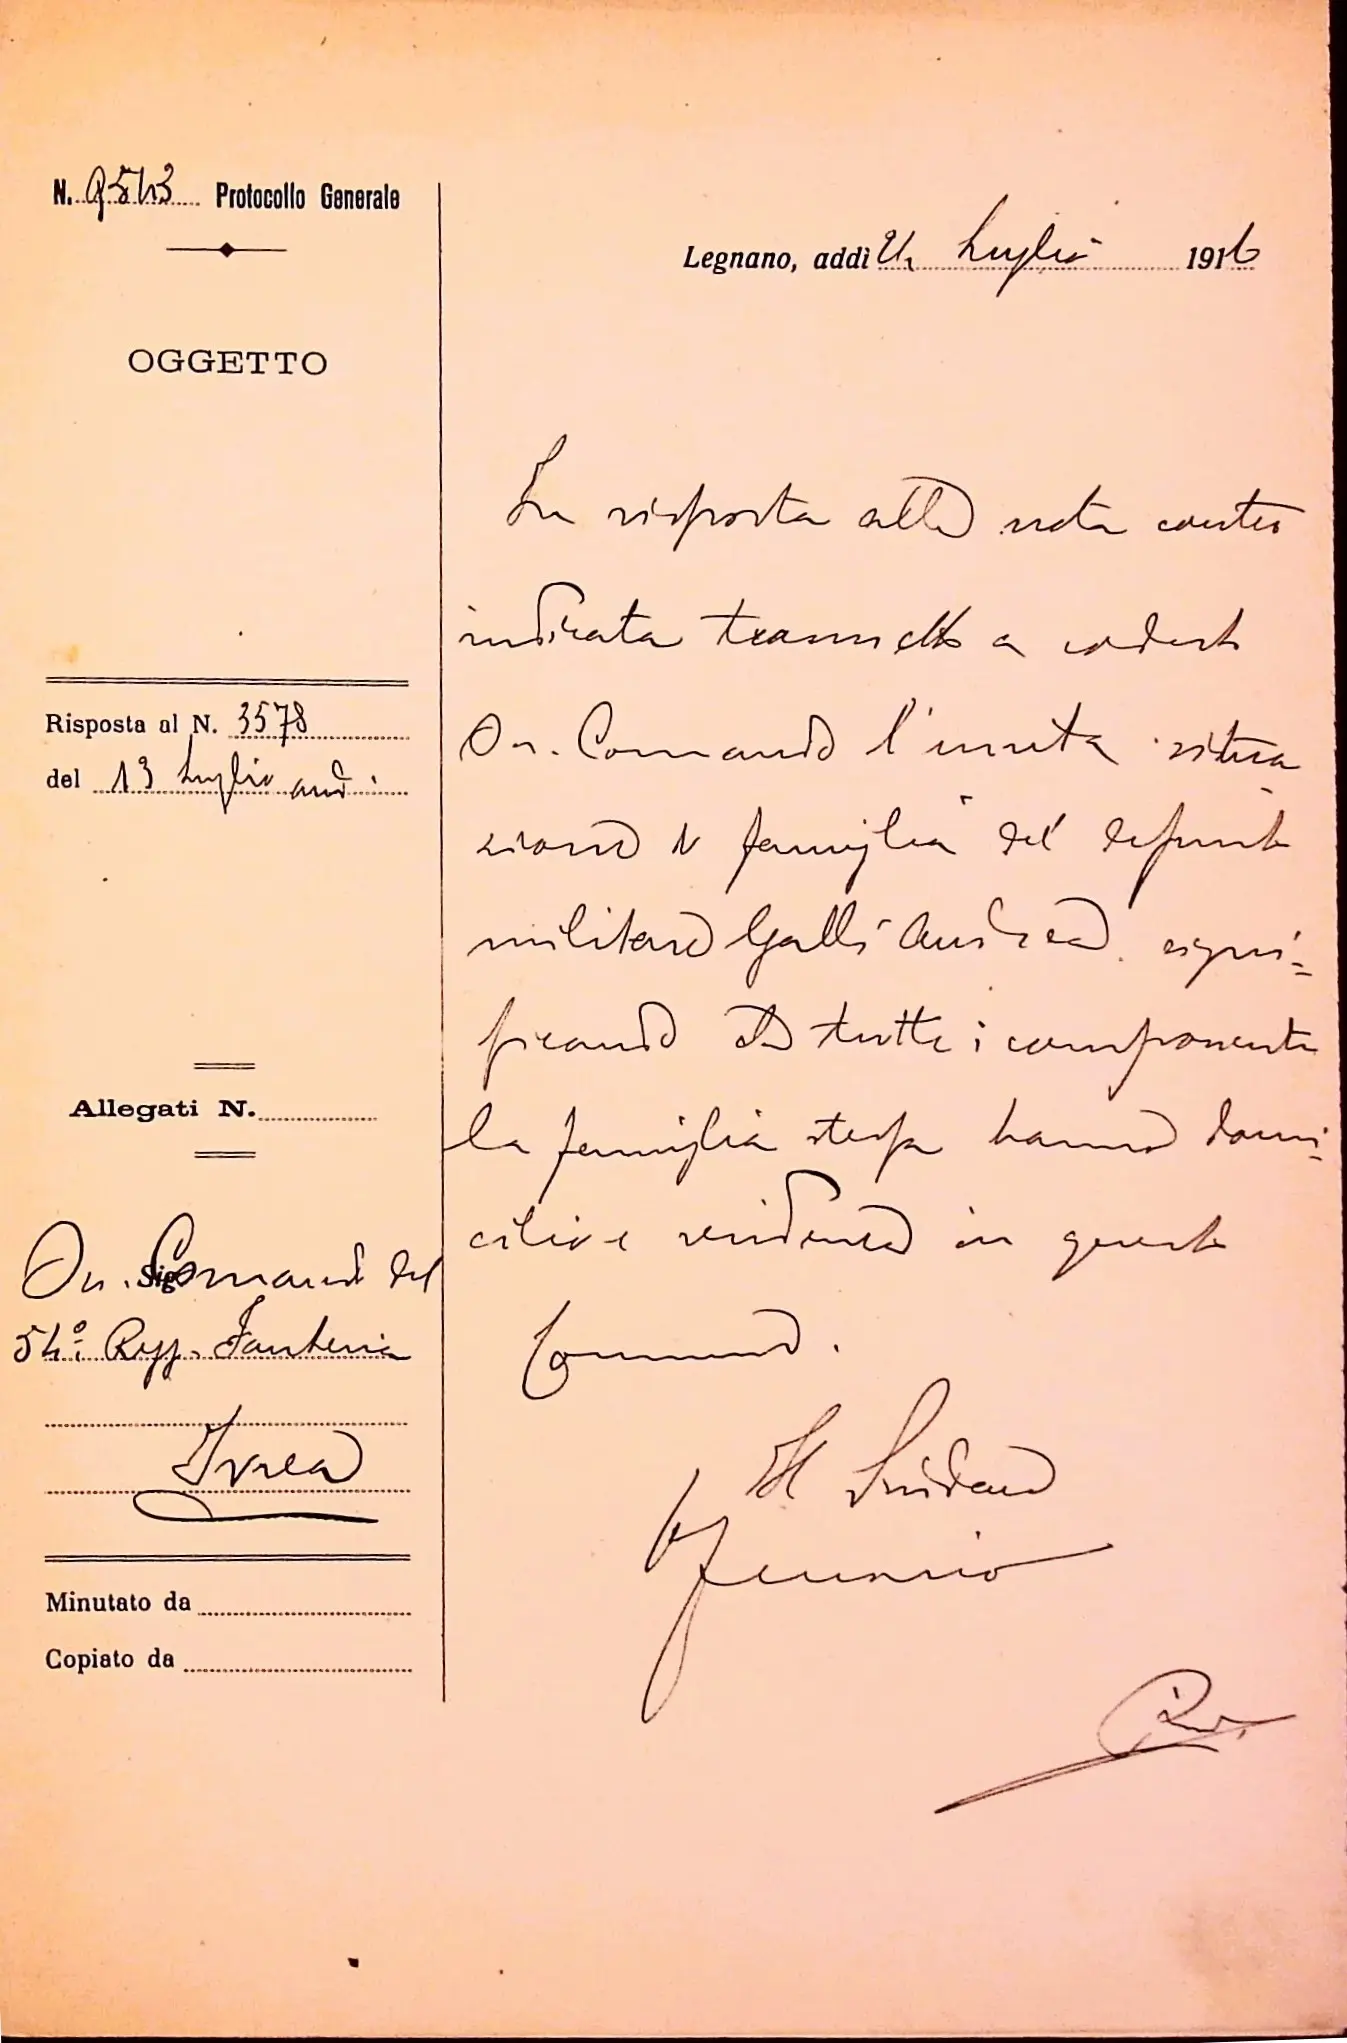 N. 9543 Protocollo Generale
OGGETTO
Risposta al N. 3578
del 13 Luglio and.
Allegati N.
On. Comando del
Sig.
54° Regg. Fanteria
Ivrea
Minutato da
Copiato da
Legnano, addì 21 Luglio 1916
In risposta alla nota contro
indicata trasmetto a codesto
On. Comando l'unita situa
zione di famiglia del defunto
militare Galli Andrea signi-
ficando che tutti i componenti
la famiglia stessa hanno domi-
cilio e residenza in questo
Comune.
Il Sindaco